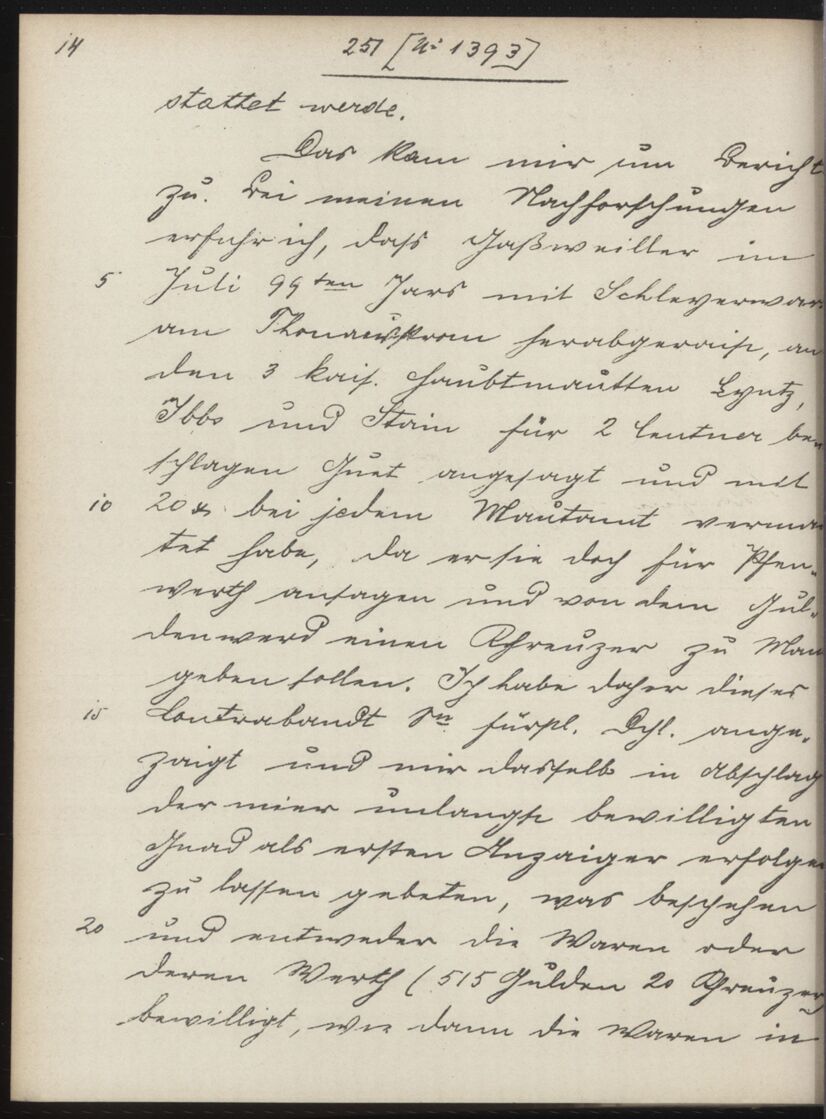 14
251 [Nr 1393]
stattet werde.
Das kam mir um Bericht
zu. Bei meinen Nachforschungen
erfuhr ich, dass Gaßweiller im
5 Juli 99ten Jars mit Schleyerwar
am Thonaustrom herabgeraist, an
den 3 kais. Haubtmautten Lyntz,
Ibbs und Stain für 2 Centner be-
schlagen Guet angesagt und mit
10 20 bei jedem Mautamt vermau
tet habe, da er sie doch für Pfen-
werth ansagen und von dem Gul-
denwerd einen Khreuzer zu Mau
geben sollen. Ich habe daher dieses
15 Contrabandt Sr fürstl. Dchl. ange-
zaigt und mir dasselb in Abschlag
der mier unlangst bewilligten
Gnad als ersten Anzaiger erfolgen
zu lassen gebeten, was beschehen
20 und entweder die Waren oder
deren Werth (515 Gulden 20 Khreuzer
bewilligt, wie dann die Waren in